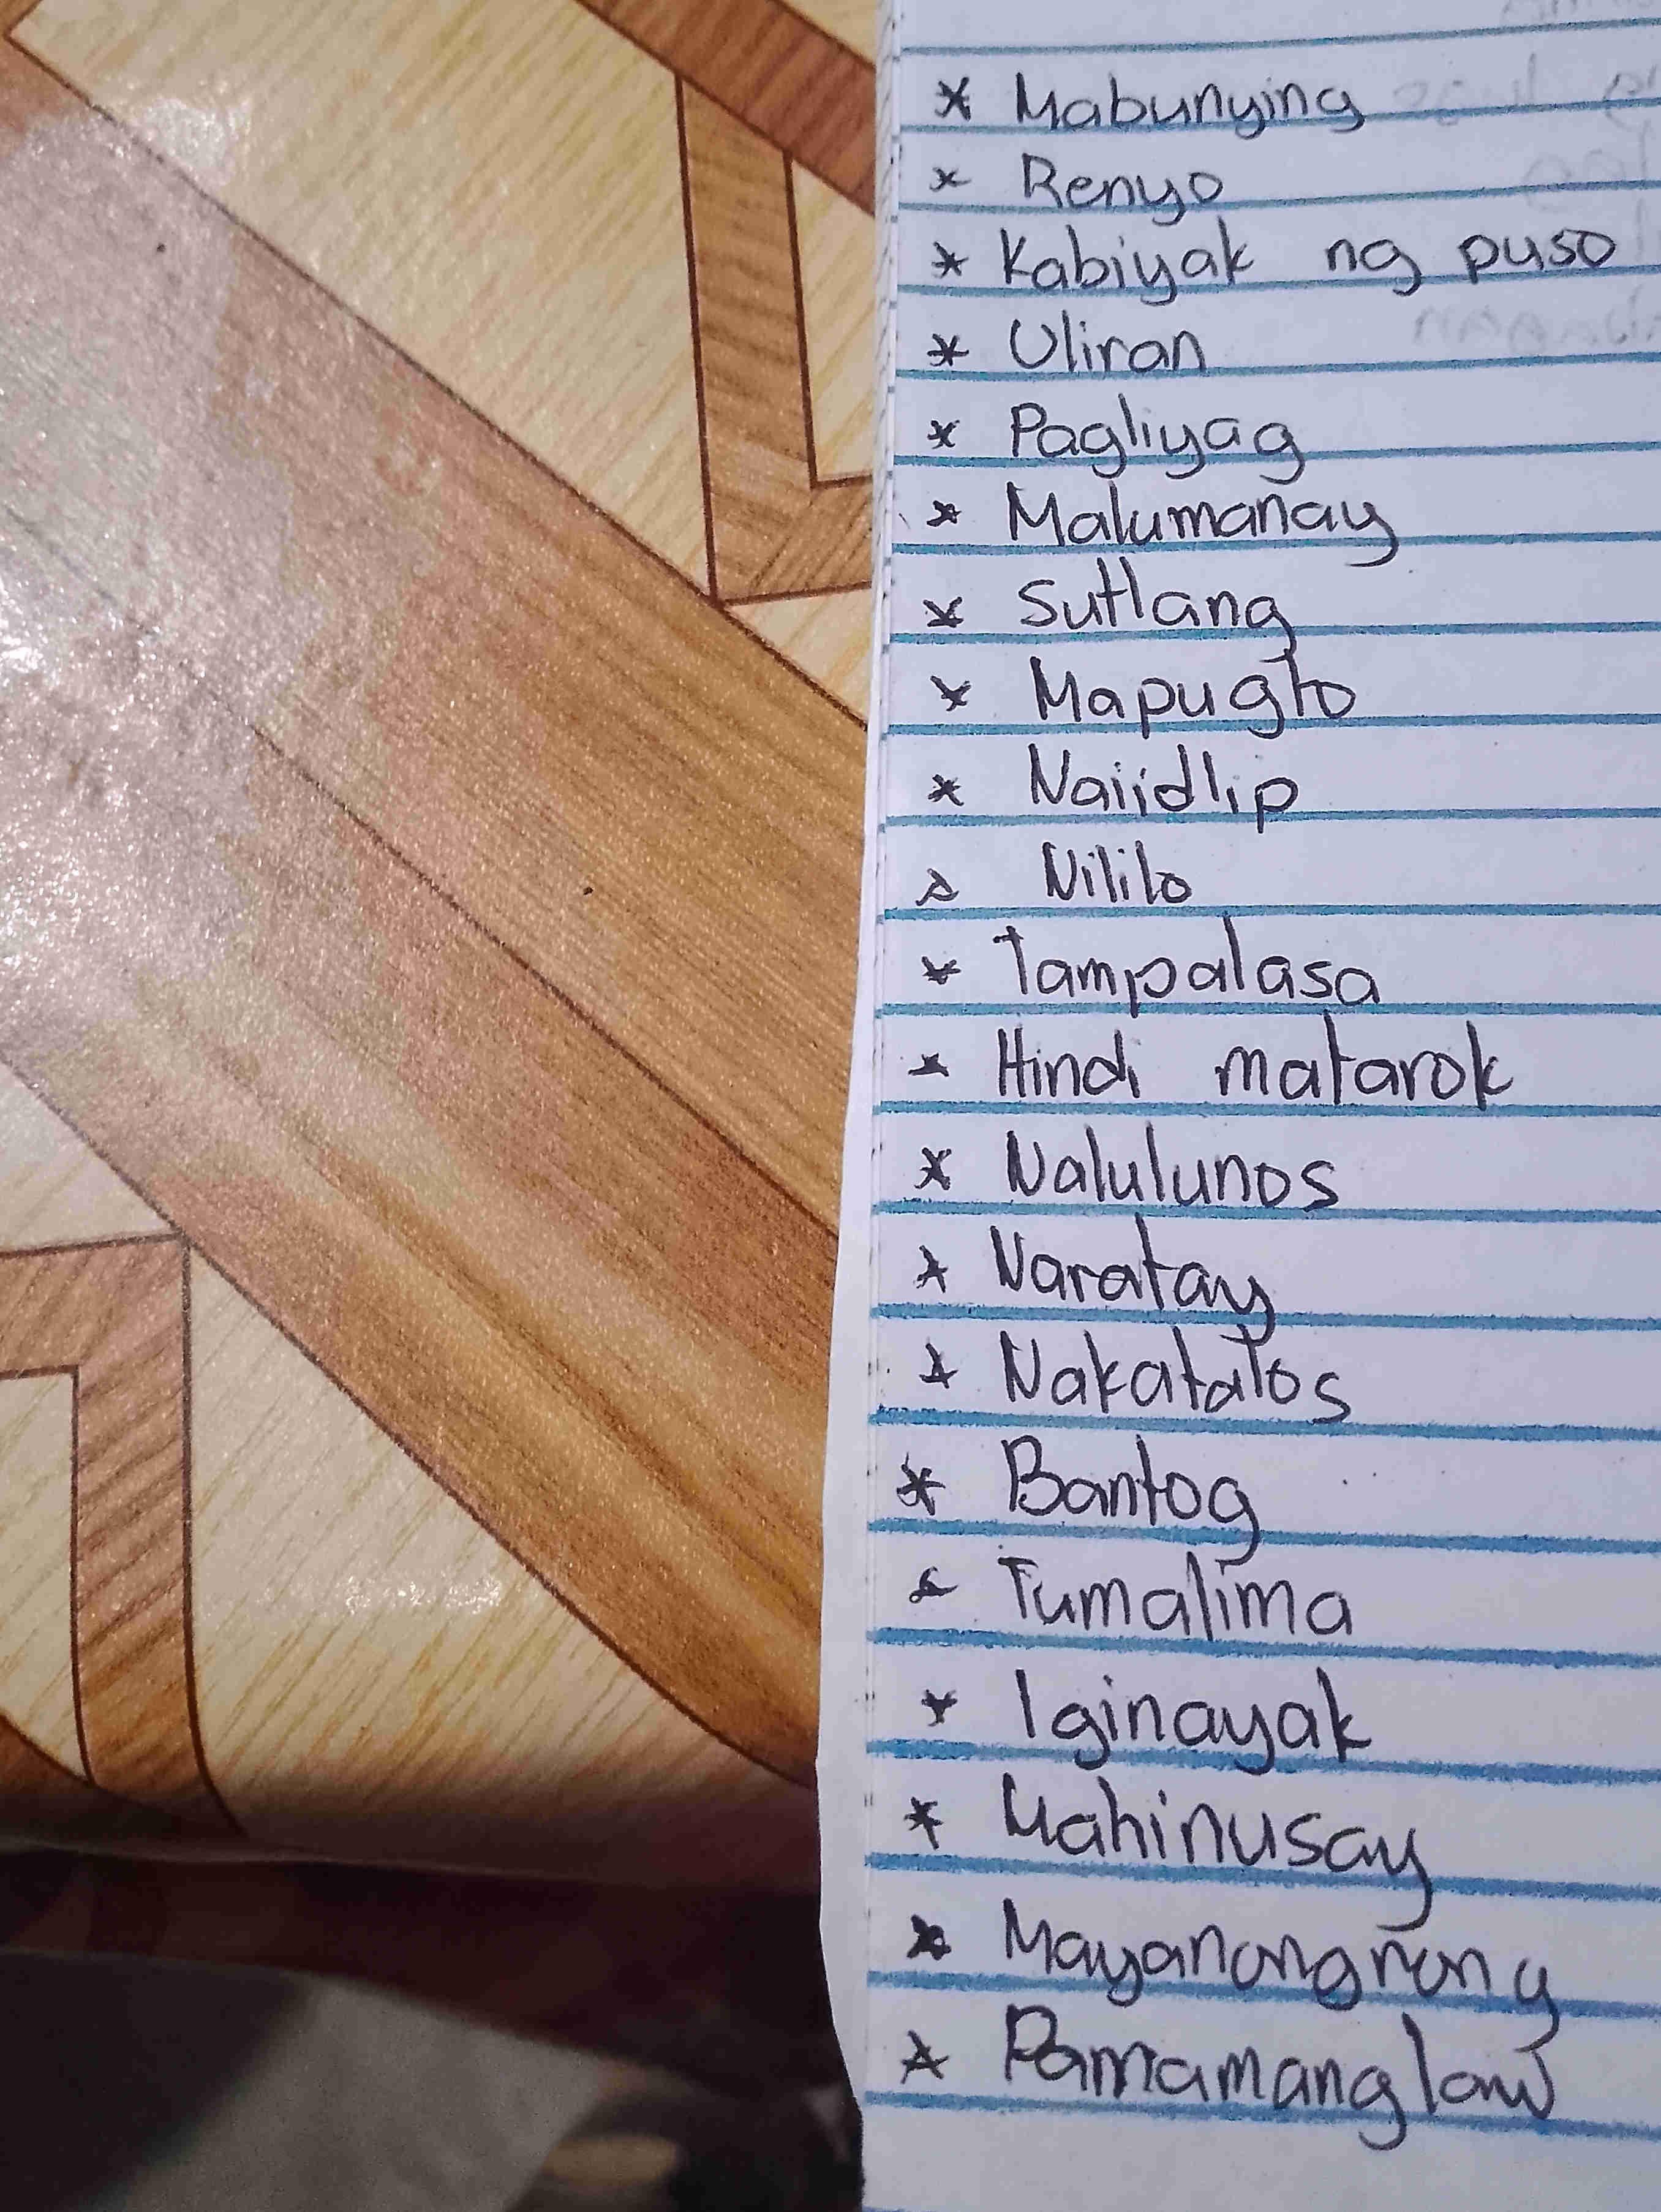 * Mabunying
* Renyo
* Kabiyak ng puso
* Uliran
* Pagliyag
* Malumanay
* Sutlang
* Mapugto
* Naiidlip
* Nililo
* Tampalasa
* Hindi matarok
* Nalulunos
* Naratay
* Nakatalos
* Bantog
* Tumalima
* Iginayak
* Mahinusay
* Mayanongnong
* Pamamanglaw